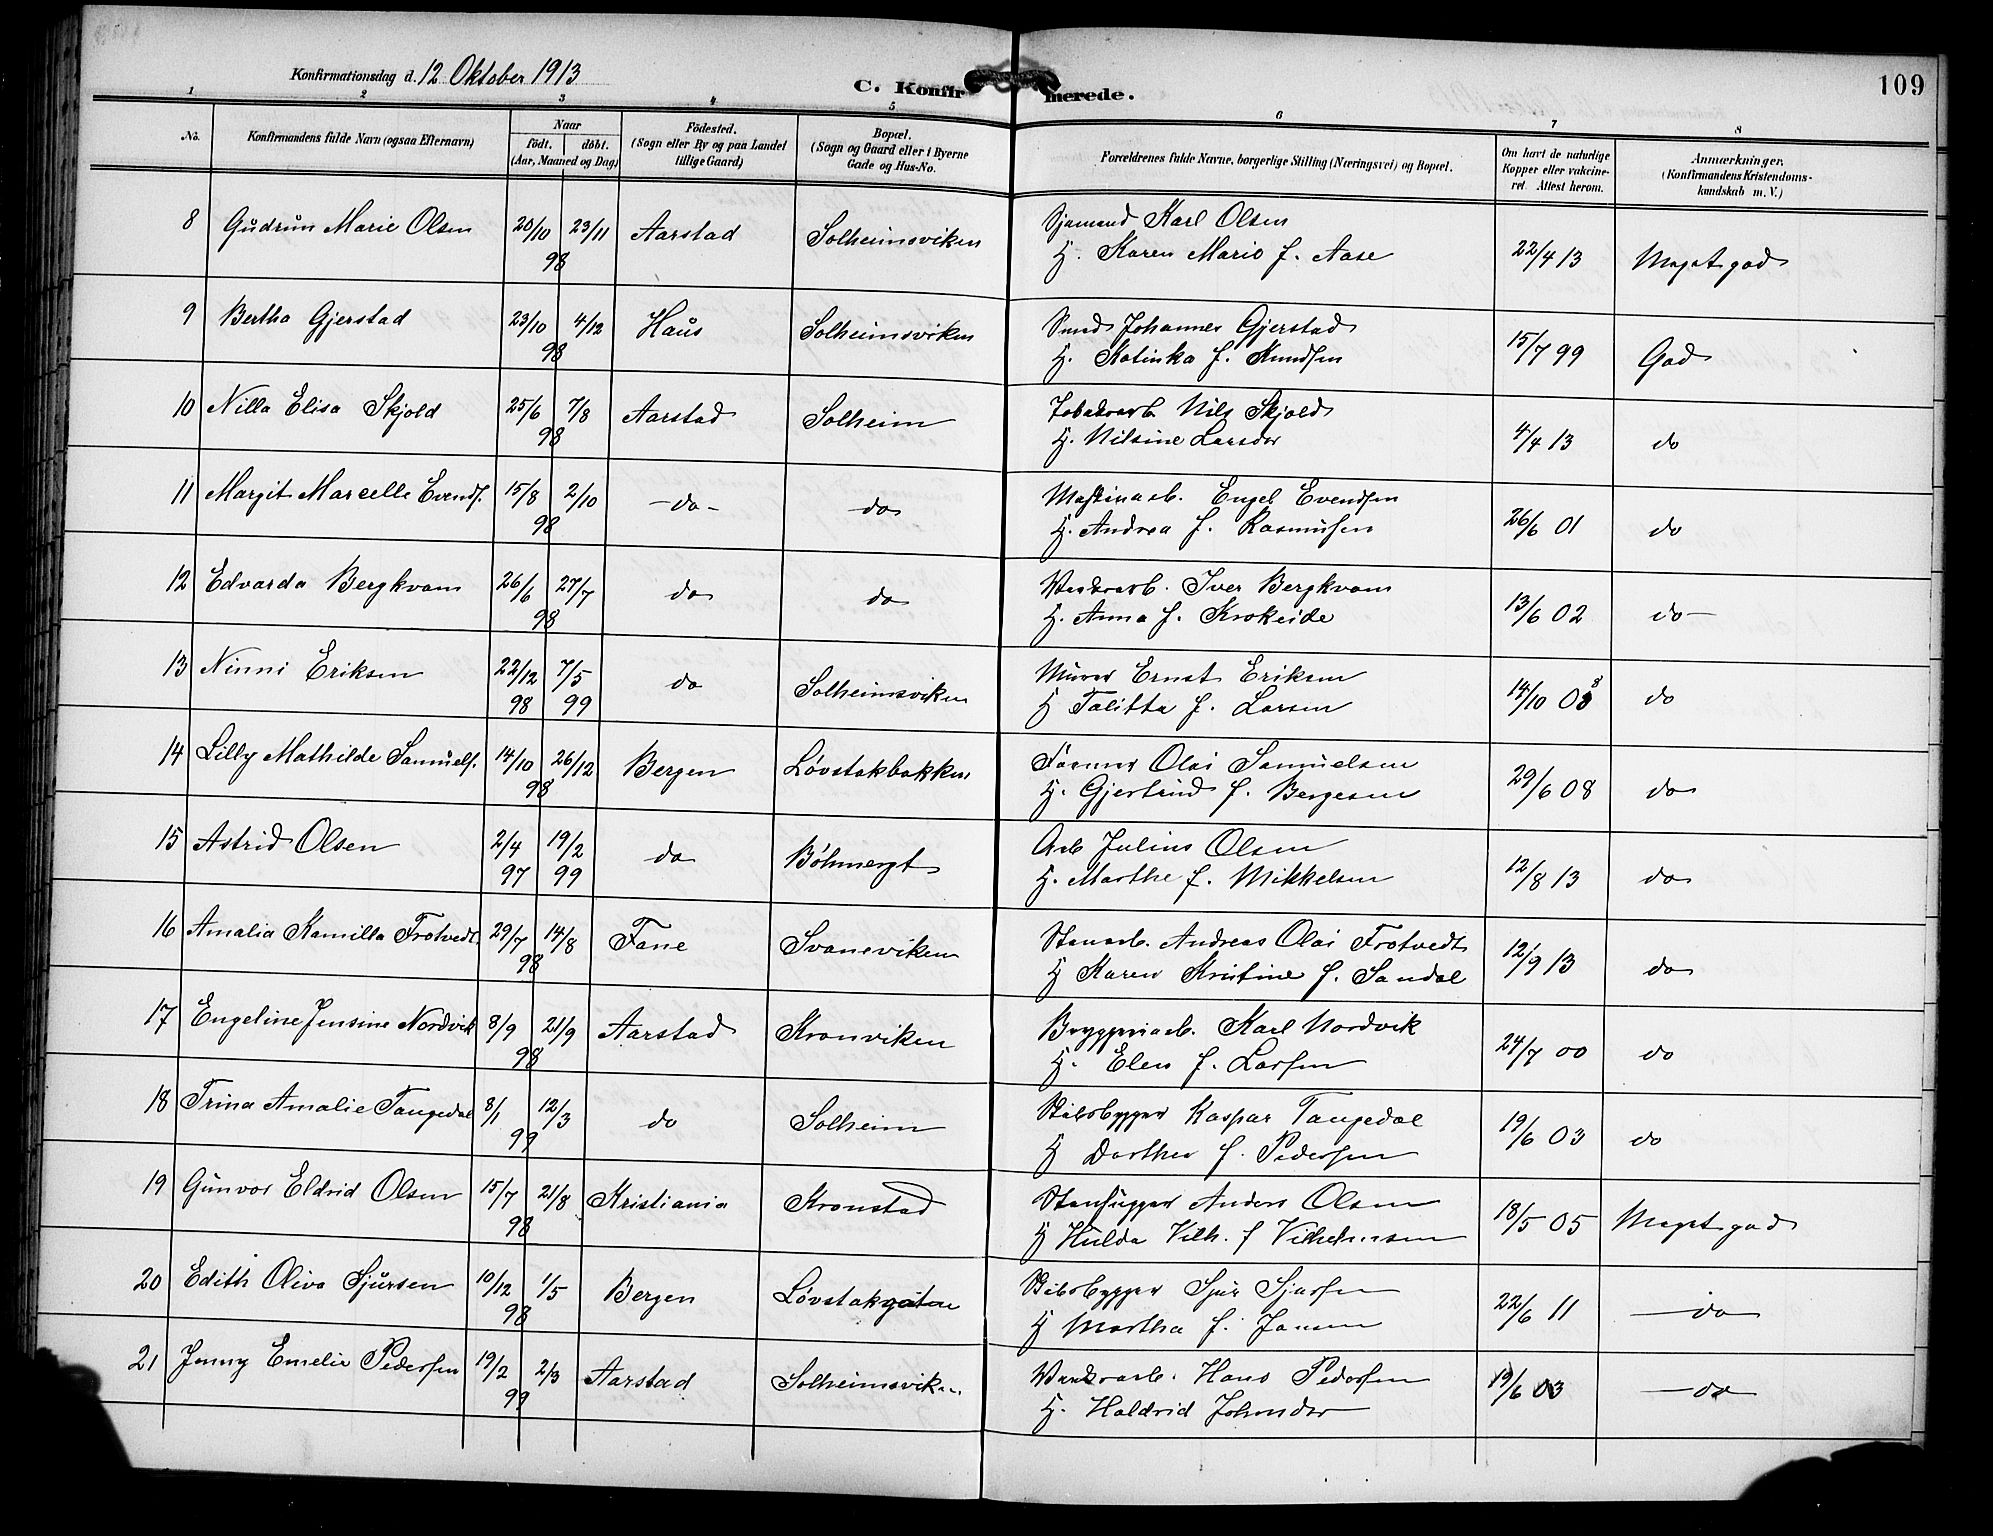 Konfirmationsdag d. 12 Oktober 1913
C. Konfirmerede.
109
1 2 3 4 5 6 7 8
No. Konfirmandens fulde Navn (ogsaa Efternavn) Naar født. døbt. (Aar, Maaned og Dag) Fødested. (Sogn eller By og paa Landet tillige Gaard) Bopæl. (Sogn og Gaard eller i Byerne Gade og Hus-No. Forældrenes fulde Navne, borgerlige Stilling (Næringsvei) og Bopæl. Om havt de naturlige Kopper eller vakcineret. Attest herom. Anmærkninger. (Konfirmandens Kristendomskundskab m. V.)
8 Gudrun Marie Olsen 20/10 23/11 98 Aarstad Solheimsviken Sjømand Karl Olsen 22/4 13 Meget god
H. Karen Marie f. Aase
9 Bertha Gjerstad 23/10 4/12 98 Haus Solheimsviken Smed Johannes Gjerstad 15/7 99 God
H. Katinka f. Knudsen
10 Nilla Elisa Skjold 25/6 7/8 98 Aarstad Solheim Nils Skjold 4/4 13 do
H. Nilsine Larsdor
11 Margit Marcelle Evends. 15/8 2/10 98 - do - do Maskinarb. Engel Evendsen 26/6 01 do
H. Andrea f. Rasmusen
12 Edvarda Bergkvam 26/6 27/7 98 do do Verksarb. Iver Bergkvam 13/6 02 do -
H. Anna f. Krokeide
13 Ninni Eriksen 22/12 98 7/5 99 do Solheimsviken Murer Ernst Eriksen 14/10 08 do
H Talitta f. Larsen
14 Lilly Mathilde Samuels. 14/10 26/12 98 Bergen Løvstakbakken Former Olai Samuelsen 29/6 08 do
H. Gjertrud f. Bergesen
15 Astrid Olsen 2/4 97 19/2 99 do Bøhmergt Arb Julius Olsen 12/8 13 do
H. Marthe f. Mikkelsen
16 Amalia Kamilla Frotvedt. 29/7 14/8 98 Fane Svaneviken Stenarb. Andreas Olai Frotvedt 12/9 13 do
H Karen Kristine f. Sandal
17 Engeline Jensine Nordvik 8/9 21/9 98 Aarstad Kronviken Bryggeriarb. Karl Nordvik 24/7 00 do
H. Elen f. Larsen
18 Trina Amalie Tangedal 8/1 12/3 99 do Solheim Skibsbygger Kaspar Tangedal 19/6 03 do
H Dorthea f. Pedersen
19 Gunvor Eldrid Olsen 15/7 21/8 98 Kristiania Kronstad Stenhugger Anders Olsen 18/5 05 Meget god
H Hulda Vilh. f Vilhelmsen
20 Edith Oliva Sjursen 10/12 98 1/5 Bergen Løvstakgaten Skibsbygger Sjur Sjursen 22/6 11 - do
H Martha f. Jansen
21 Jenny Emelie Pedersen 19/2 2/3 99 Aarstad Solheimsviken Verksarb. Hans Pedersen 19/6 03 - do -
H. Haldrid Johnsdor